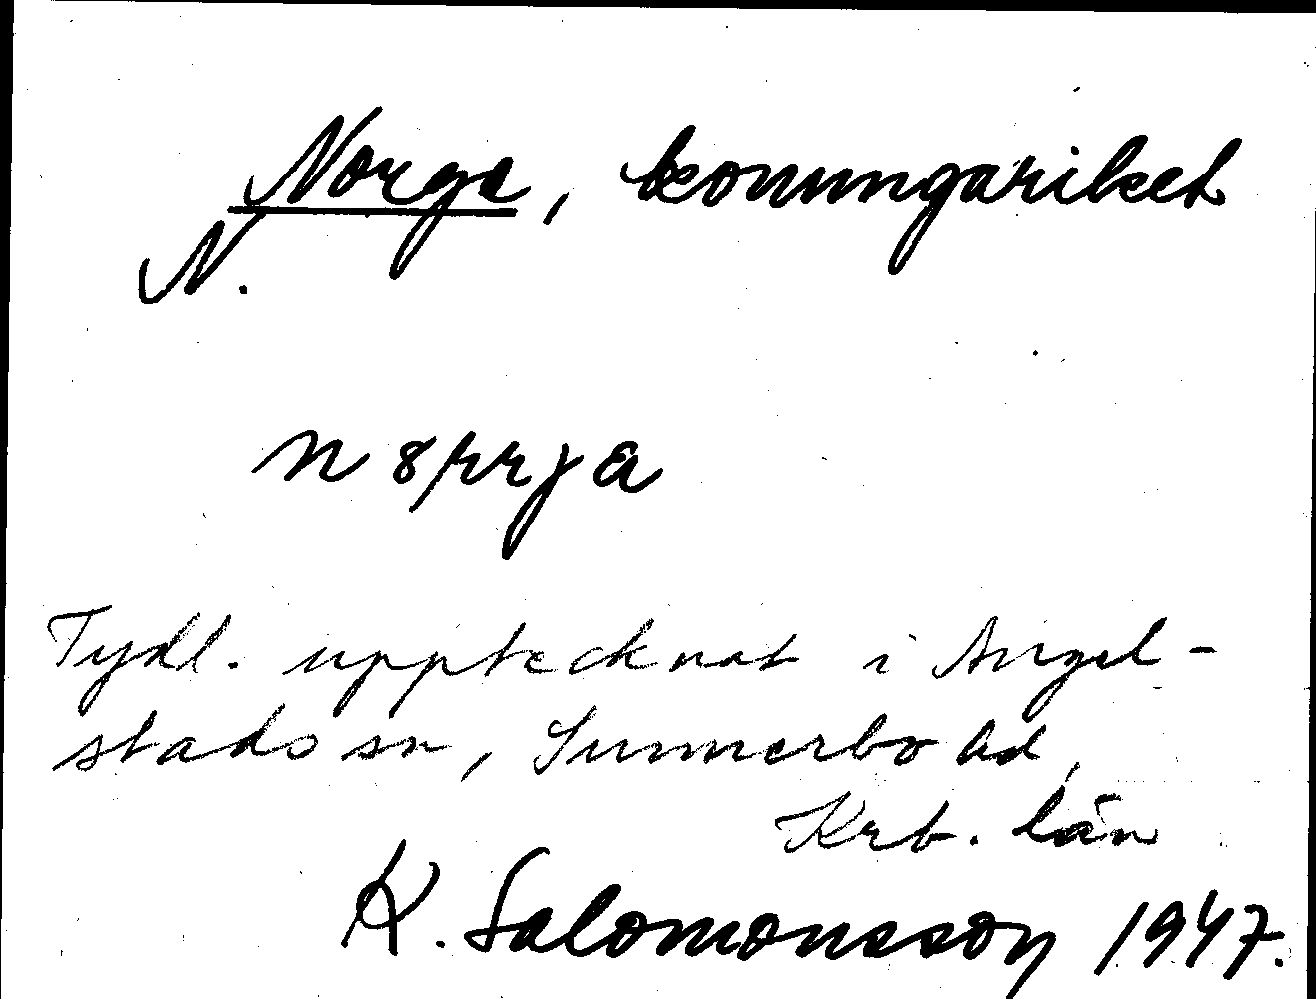 Norge, konungariket
N.
n8rrja
Tydl. upptecknat i Angel-
stads sn, Sunnerbo hd,
Krb. län
K. Salomonsson 1947.